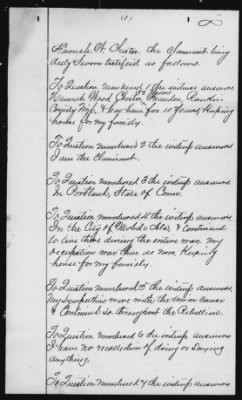 (1)
Hannah W. Chester the Claimant being
duly Sworn testified as follows.
To Question numbered 1 the witness answers
Hannah Wood Chester, Brandon, Rankin
County Miss, & been here for 10 years, Keeping
house for my family.
To Question numbered 2 the witness answers
I am the Claimant.
To Question numbered 3 the witness answers
In Portland, State of Conn.
To Question numbered 4 the witness answers
In the City of Mobile Ala, & Continued
to live there during the entire war. My
occupation was then as now Keeping
house for my family.
To Question numbered 5 the witness answers
My Sympathies were with the Union Cause
& Continued so throughout the Rebellion.
To Question numbered 6 the witness answers
I have no recollection of doing or Saying
anything.
To Question numbered 7 the witness answers